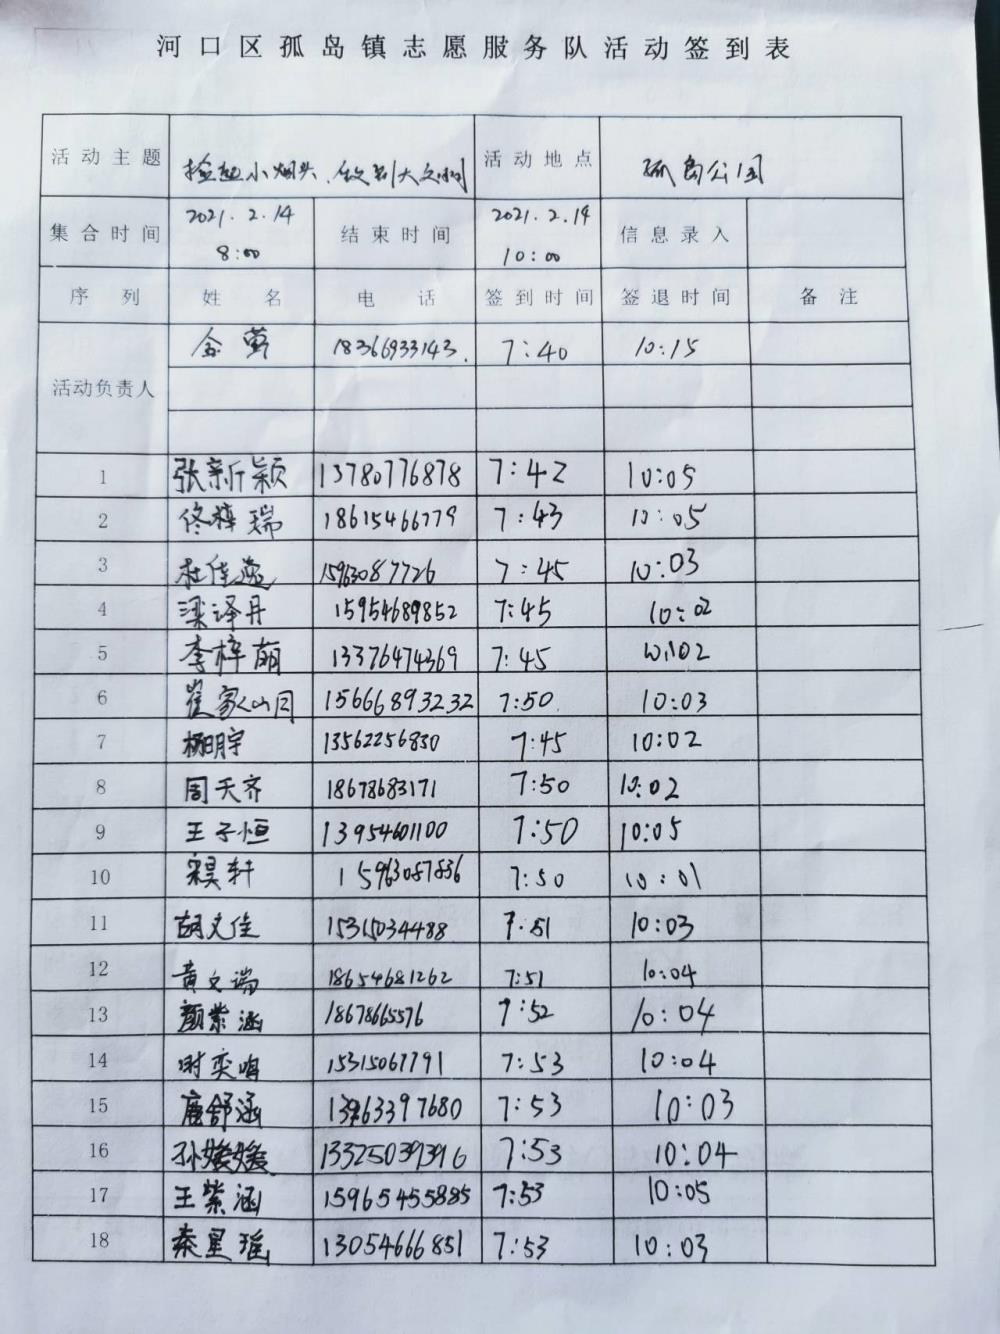 河口区孤岛镇志愿服务队活动签到表
活动主题 捡起小烟头、做别大文明 活动地点 孤岛公园
集合时间 2021.2.14 8:00 结束时间 2021.2.14 10:00 信息录入
序列 姓名 电话 签到时间 签退时间 备注
活动负责人 金莺 18366933143. 7:40 10:15
1 张新颖 13780776878 7:42 10:05
2 佟梓瑞 18615466779 7:43 10:05
3 杜佳逸 15963087726 7:45 10:03
4 梁泽丹 15954689852 7:45 10:02
5 李梓萌 13376474369 7:45 10:02
6 崔家 15666893232 7:50. 10:03
7 杨明宇 13562256830 7:45 10:02
8 周天齐 18678683171 7:50 10:02
9 王子恒 13954601100 7:50 10:05
10 轩 15963087836 7:50 10:01
11 胡文佳 15315034488 7:51 10:03
12 黄文瑞 18654681262 7:51 10:04
13 颜紫涵 18678665576 7:52 10:04
14 时奕 15315067791 7:53 10:04
15 舒涵 7:53 10:03
16 孙媛媛 13325039396 7:53 10:04
17 王紫涵 15965455885 7:53 10:05
18 秦星瑶 13054666851 7:53 10:03